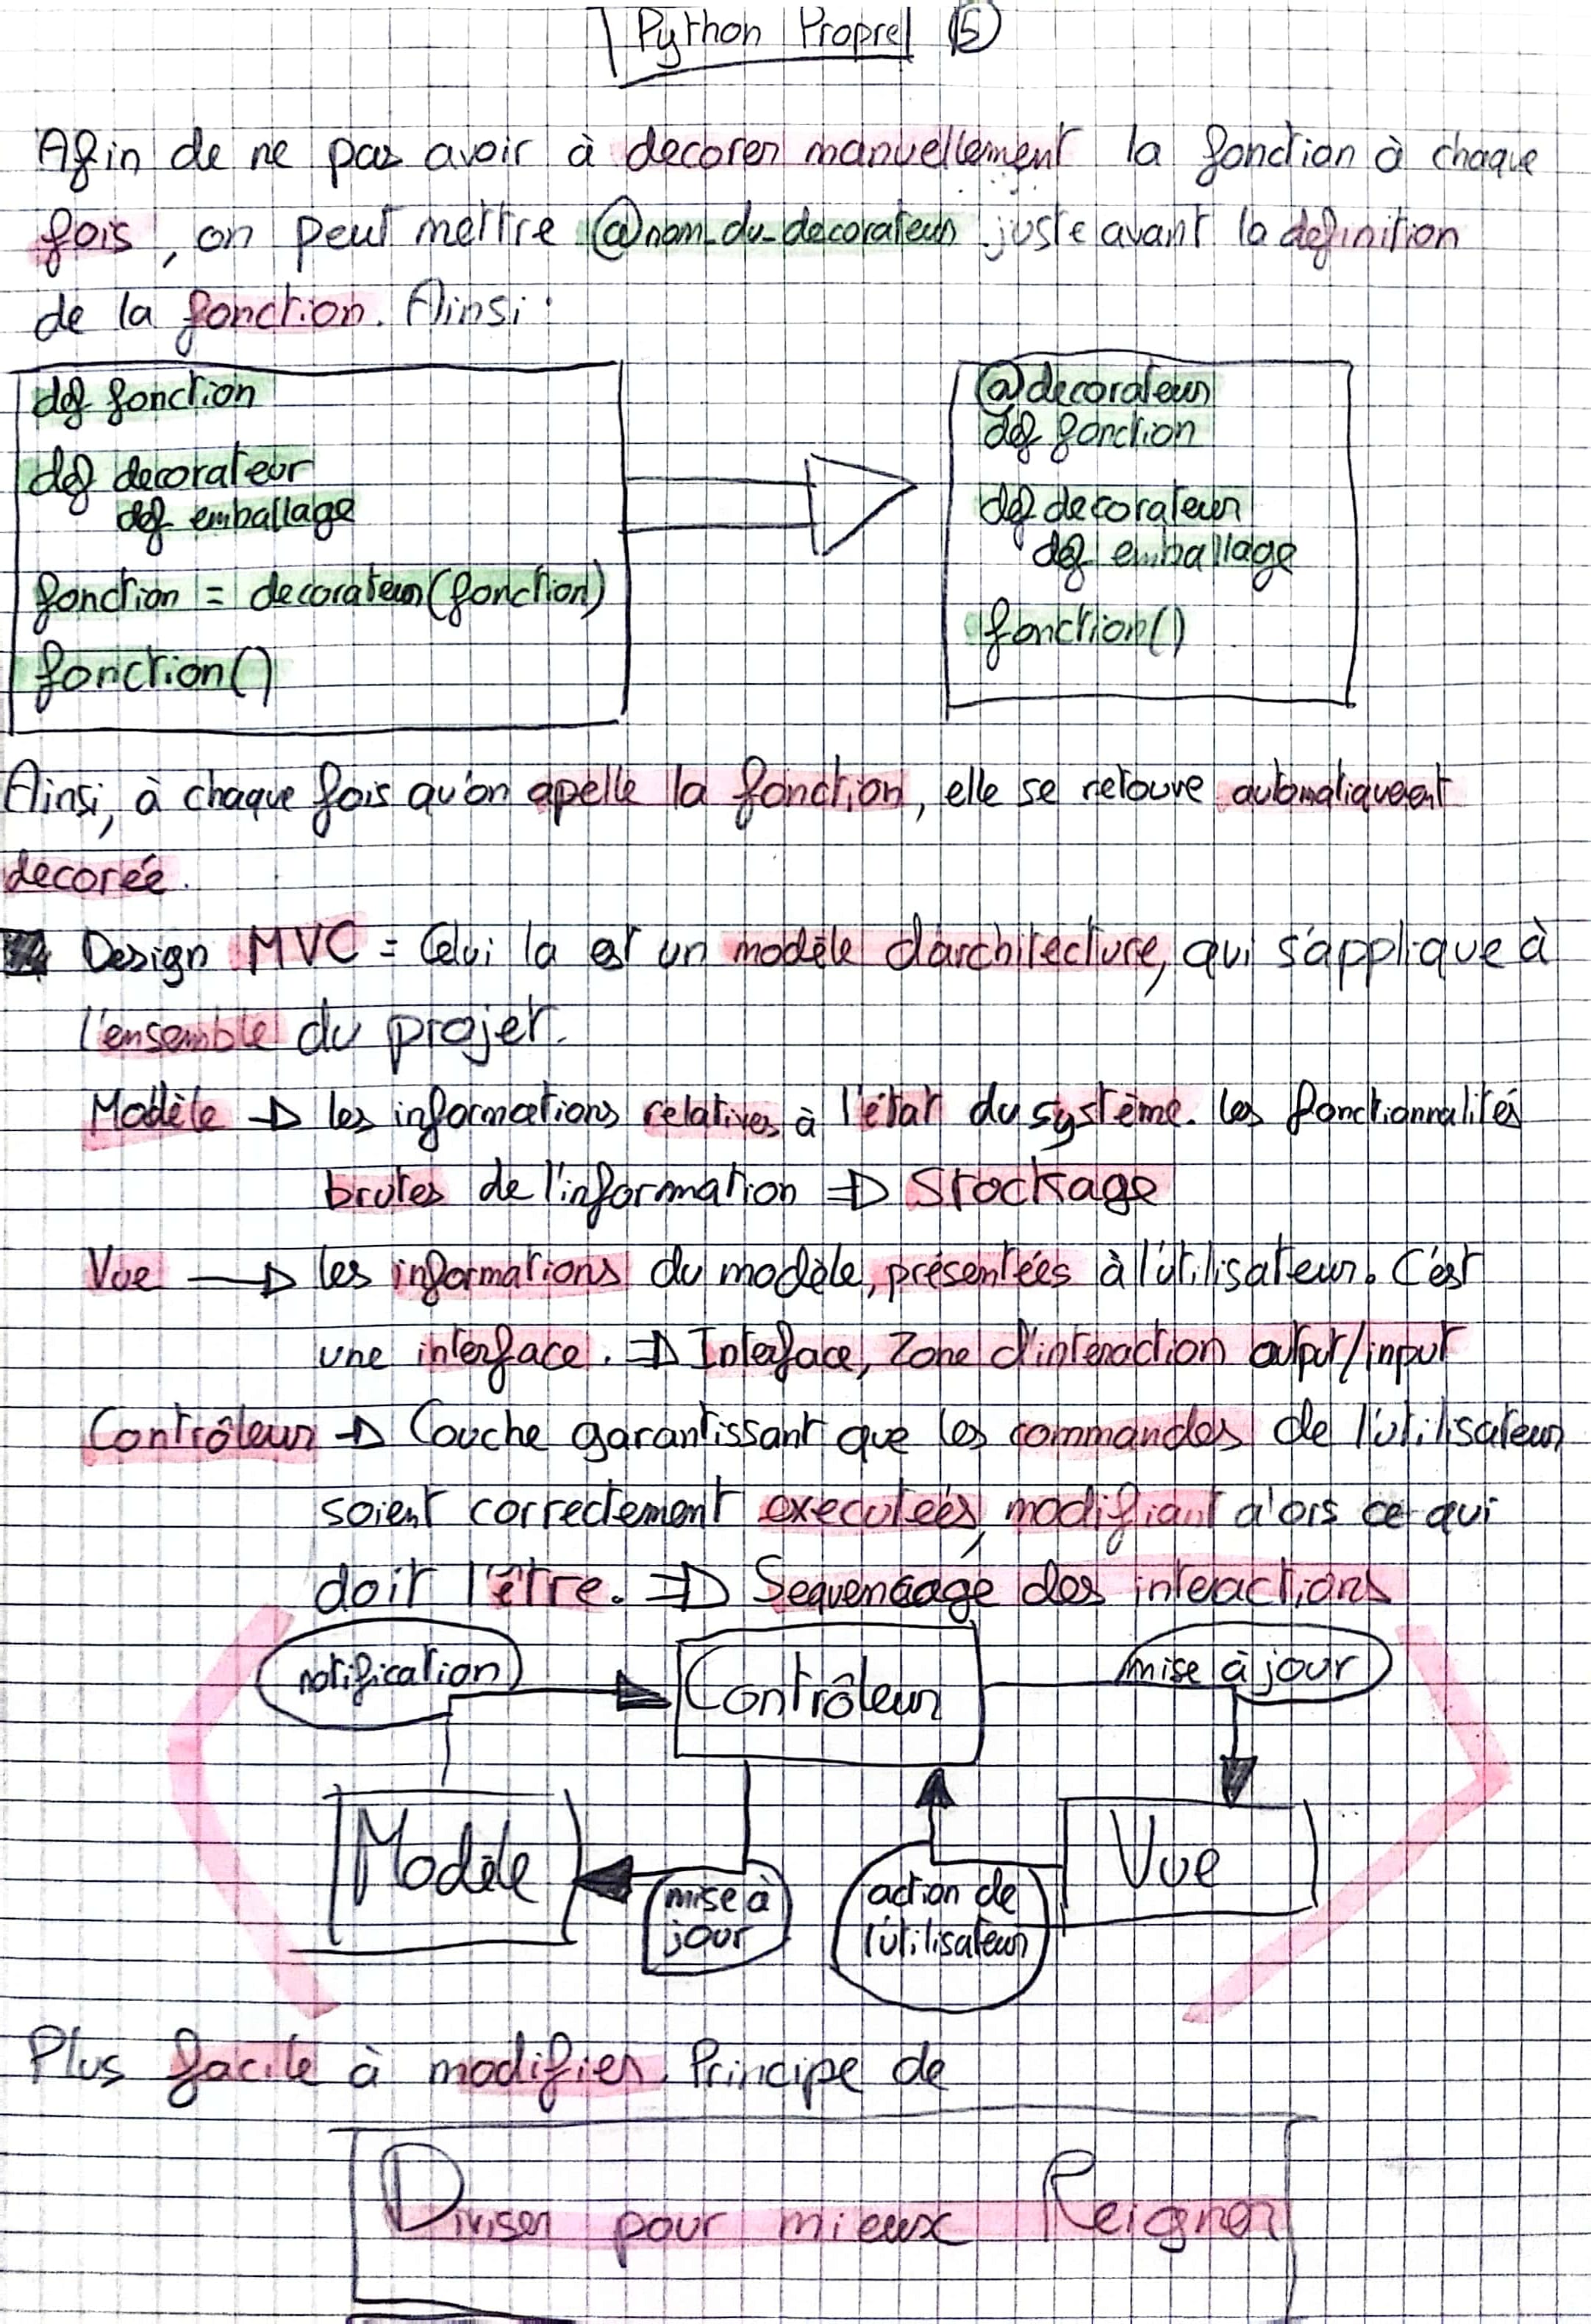 Python Propre 5
Afin de ne pas avoir à decorer manuellement la fonction à chaque
fois, on peut mettre @nom_du_decorateur juste avant la definition
de la fonction. Ainsi :
def fonction
def decorateur
def emballage
fonction = decorateur(fonction)
fonction()
@decorateur
def fonction
def decorateur
def emballage
fonction()
Ainsi, à chaque fois qu'on apelle la fonction, elle se retouve automatiqueent
decorée.
Design MVC = Celui la est un modèle d'architecture, qui s'applique à
l'ensemble du projet.
Modèle → les informations relatives à l'état du système. les fonctionnalités
brutes de l'information ⇒ Stockage
Vue → les informations du modèle, présentées à l'utilisateur. C'est
une interface. ⇒ Interface, Zone d'interaction output/input
Contrôleur → Couche garantissant que les commandes de l'utilisateur
soient correctement executées, modifiant alors ce qui
doit l'être. ⇒ Sequencage des interactions
notification
Contrôleur
mise à jour
Modèle
mise à
jour
action de
l'utilisateur
Vue
Plus facile à modifier. Principe de
Diviser pour mieux Reigner